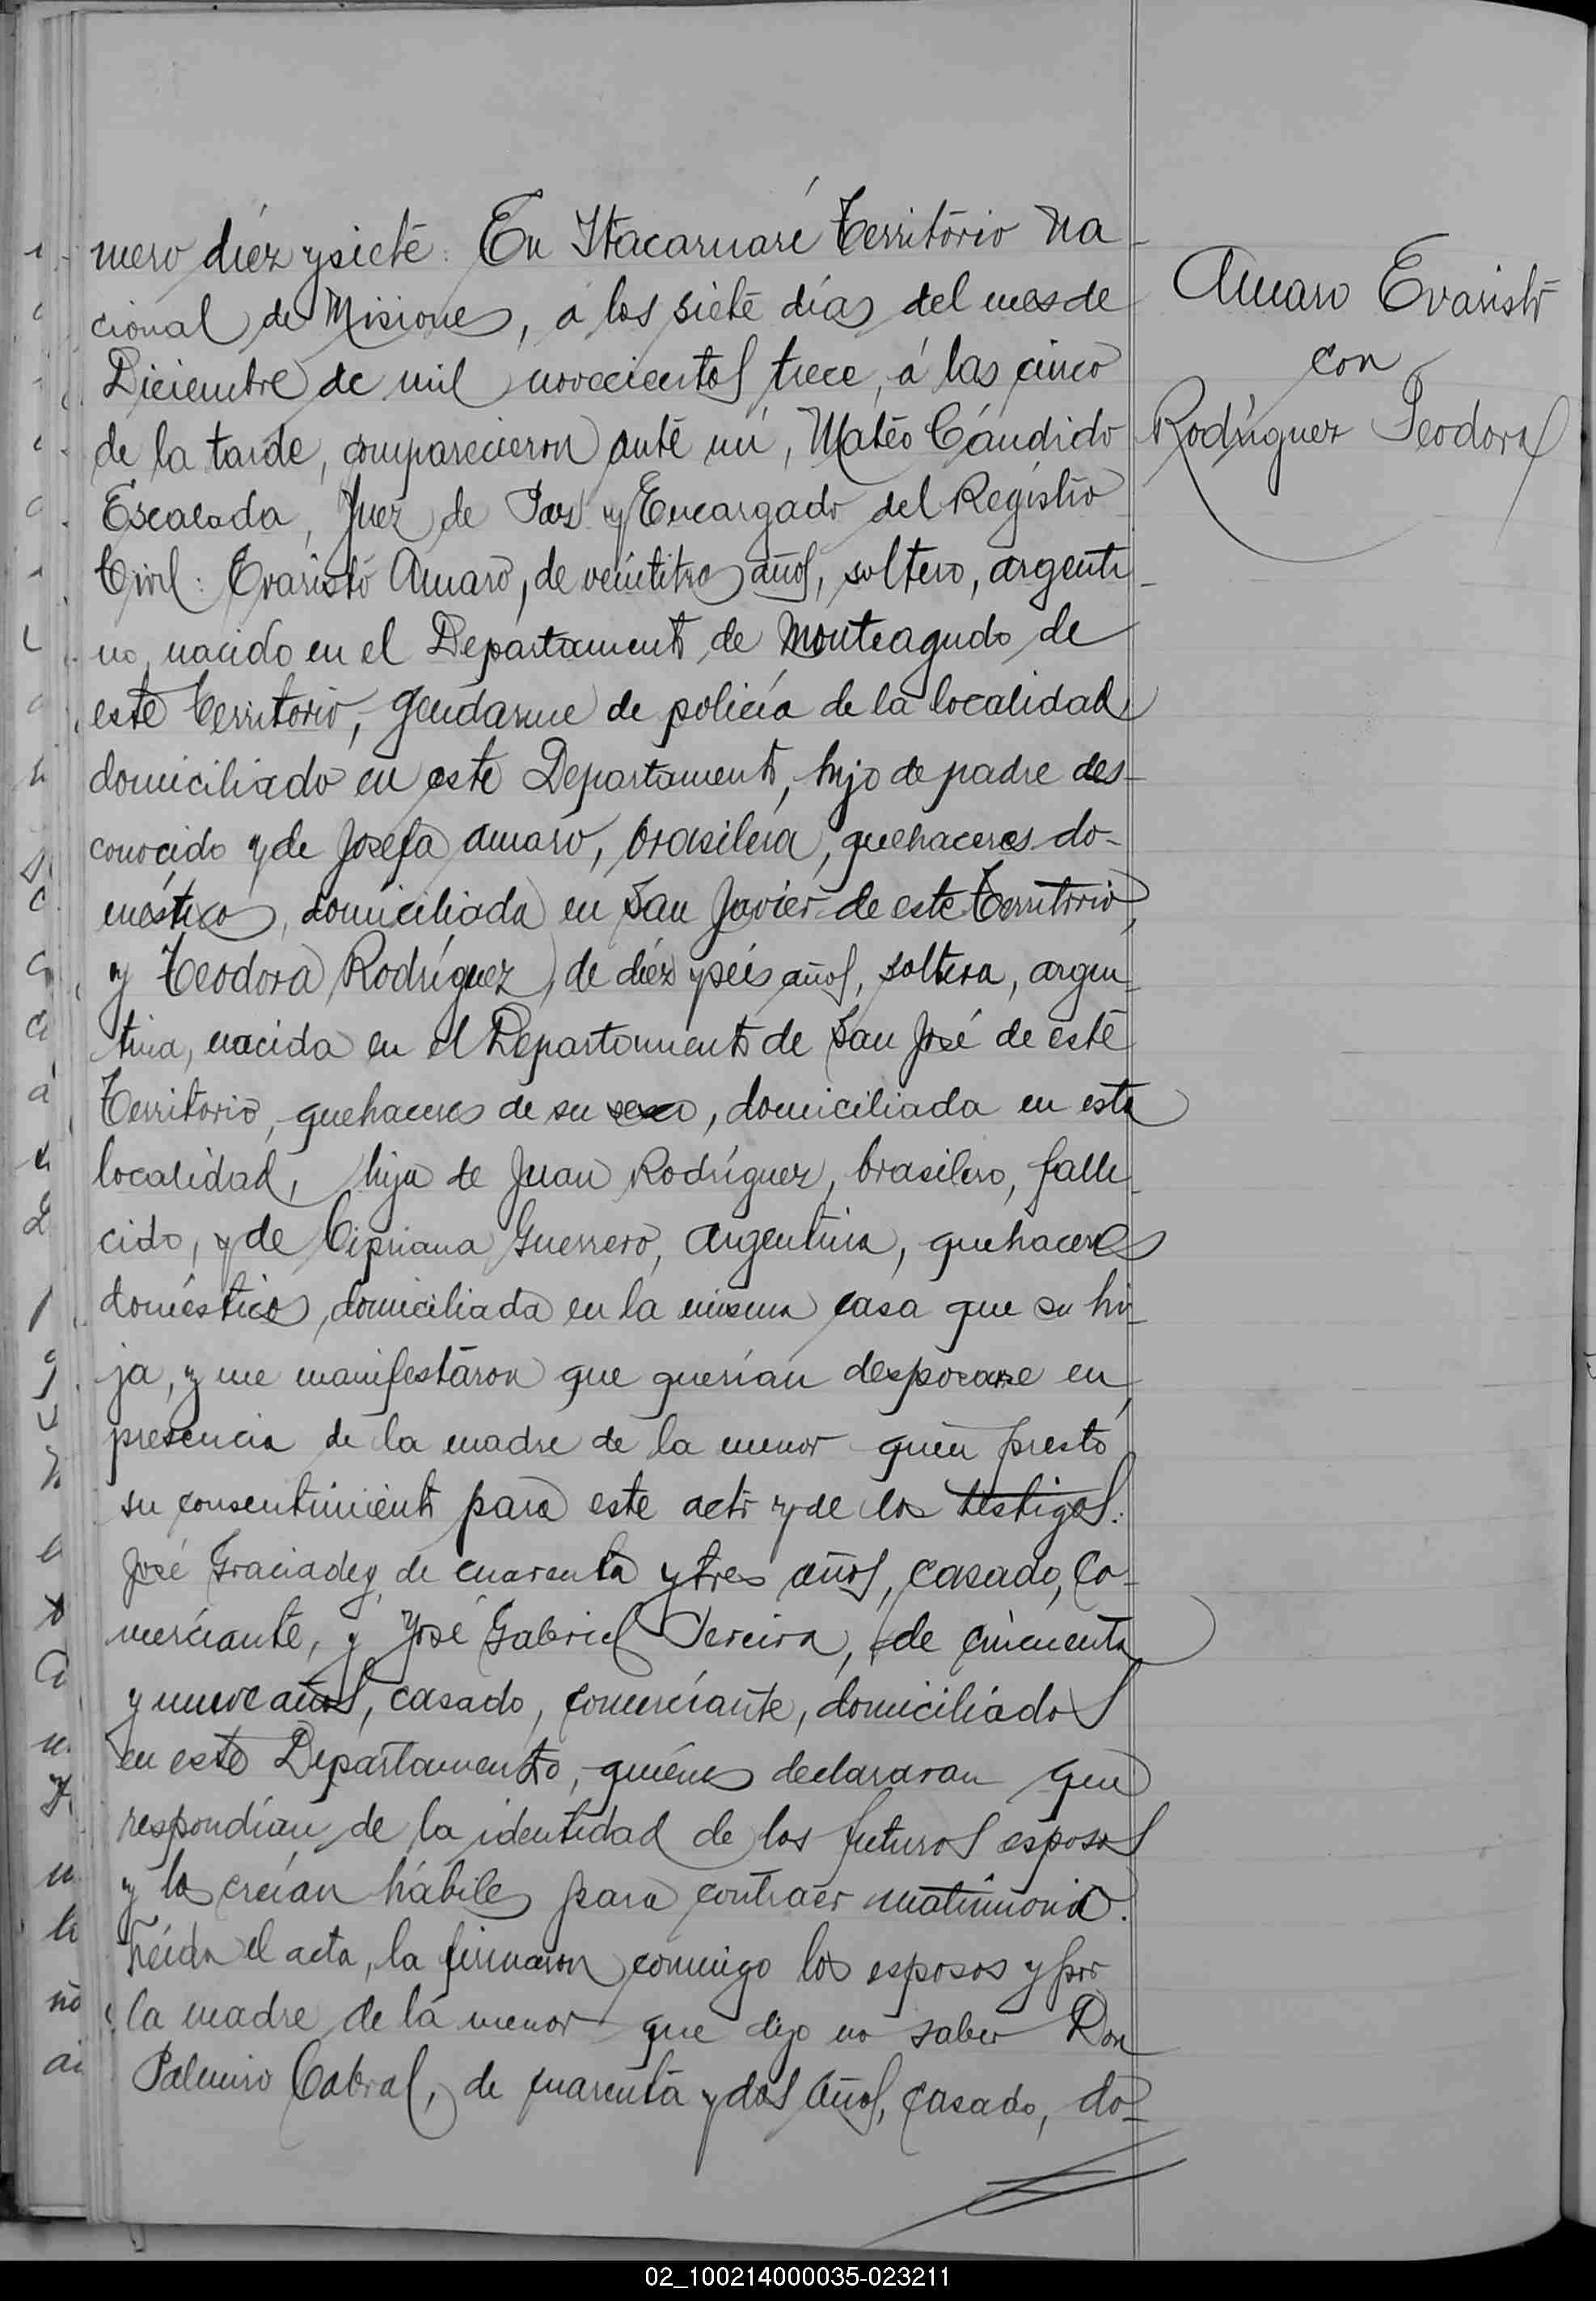 mero diéz y siete: En Itacaruaré Territorio Na-
cional de Misiones, á los siete días del mes de
Diciembre de mil novecientos trece, á las cinco
de la tarde, comparecieron ante mí, Matéo Cándido
Escalada, Juez de Paz y Encargado del Registro
Civil: Evaristo Amaro, de veintitres años, soltero, argenti-
no, nacido en el Departamento de Monteagudo de
este Territorio, gendarme de policía de la localidad,
domiciliado en este Departamento, hijo de padre des-
conocido y de Josefa Amaro, brasilera, quehaceres do-
mésticos, domiciliada en San Javier de este Territorio,
y Teodora Rodríguez, de diéz y seis años, soltera, argen-
tina, nacida en el Departamento de San José de este
Territorio, quehaceres de su sexo, domiciliada en esta
localidad, hija de Juan Rodríguez, brasilero, falle-
cido, y de Cipriana Guerrero, Argentina, quehaceres
domésticos, domiciliada en la misma casa que su hi-
ja, y me manifestaron que querían desposarse en
presencia de la madre de la menor quién prestó
su consentimiento para este acto y de los testigos:
José Graciadey, de cuarenta y tres años, casado, co-
merciante, y José Gabriel Pereira, de cincuenta
y nueve años, casado, comerciante, domiciliados
en este Departamento, quiénes declararan que
respondían de la identidad de los futuros esposos
y los creían hábiles para contraer matrimonio.
Leída el acta, la firmaron conmigo los esposos y por
la madre de la menor que dijo no saber Don
Palmiro Cabral, de cuarenta y dos años, casado, do-
Amaro Evaristo
con
Rodríguez Teodora
02_100214000035-023211